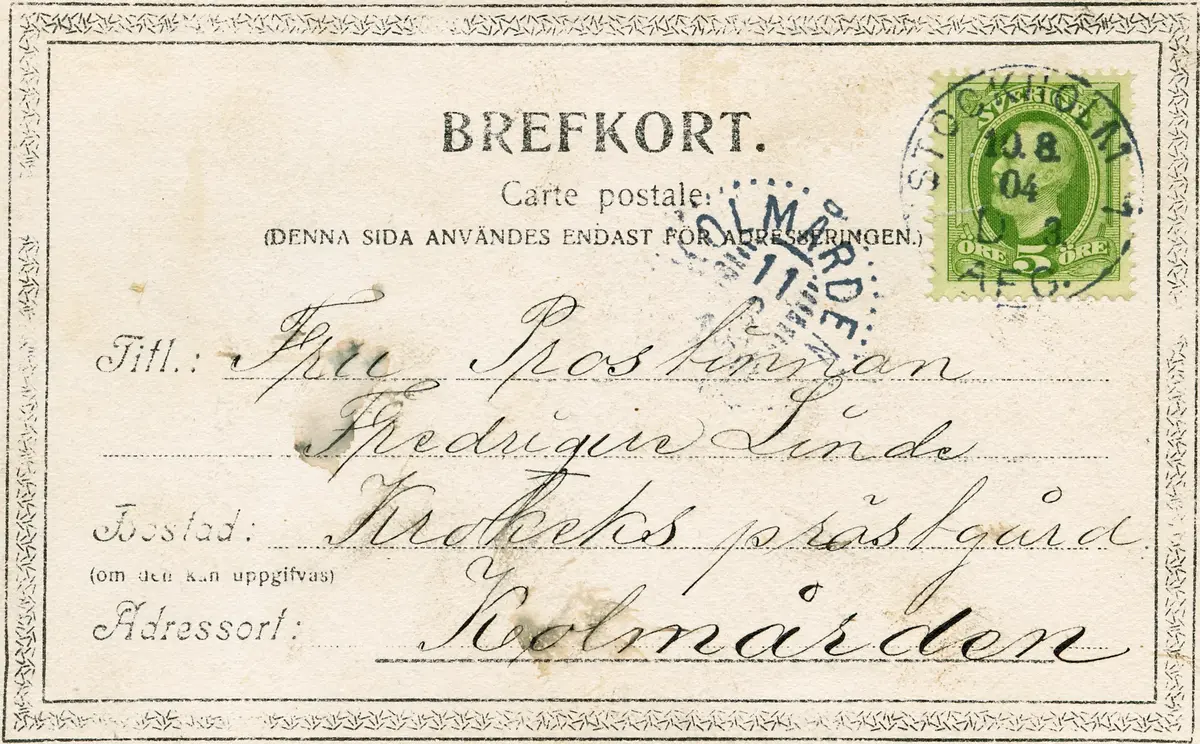 BREFKORT.
Carte postale.
(DENNA SIDA ANVÄNDES ENDAST FÖR ADRESSERINGEN.)
STOCKHOLM 1
10. 8.
04
3
AFG.
SVERIGE
ÖRE 5 ÖRE
KOLMÅRDEN
11
Titl.: Fru Prostinnan
Fredrique Linde
Bostad: Krokeks prästgård
(om den kan uppgifvas)
Adressort: Kolmården